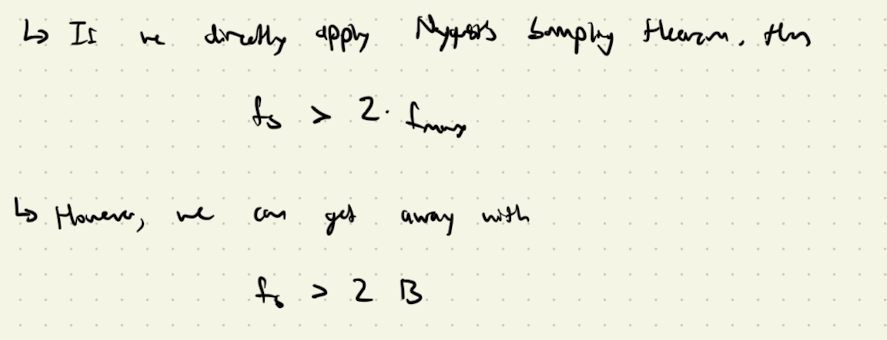 ↳ If we directly apply Nyquist Sampling theorem, then
fs > 2 · fmax
↳ However, we can get away with
fs > 2 B